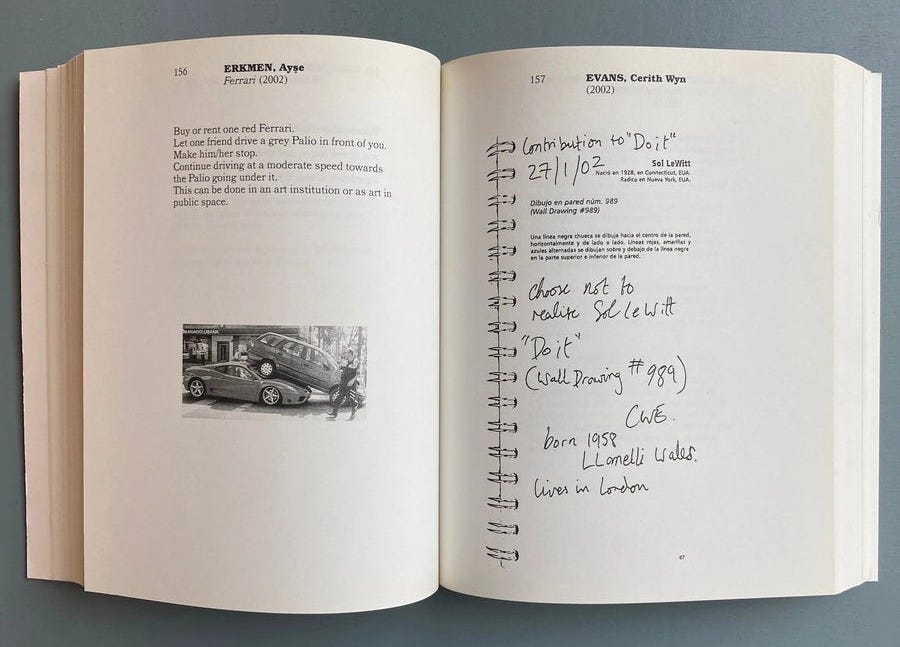 156
ERKMEN, Ayşe
Ferrari (2002)
Buy or rent one red Ferrari.
Let one friend drive a grey Palio in front of you.
Make him/her stop.
Continue driving at a moderate speed towards
the Palio going under it.
This can be done in an art institution or as art in
public space.
157
EVANS, Cerith Wyn
(2002)
Contribution to "Do it"
27/1/02
Sol LeWitt
Nació en 1928, en Connecticut, EUA.
Radica en Nueva York, EUA.
Dibujo en pared núm. 989
(Wall Drawing #989)
Una línea negra chueca se dibuja hacia el centro de la pared,
horizontalmente y de lado a lado. Líneas rojas, amarillas y
azules alternadas se dibujan sobre y debajo de la línea negra
en la parte superior e inferior de la pared.
choose not to
realise Sol LeWitt
"Do it"
(Wall Drawing #989)
CWE.
born 1958
LLanelli Wales.
lives in London
67